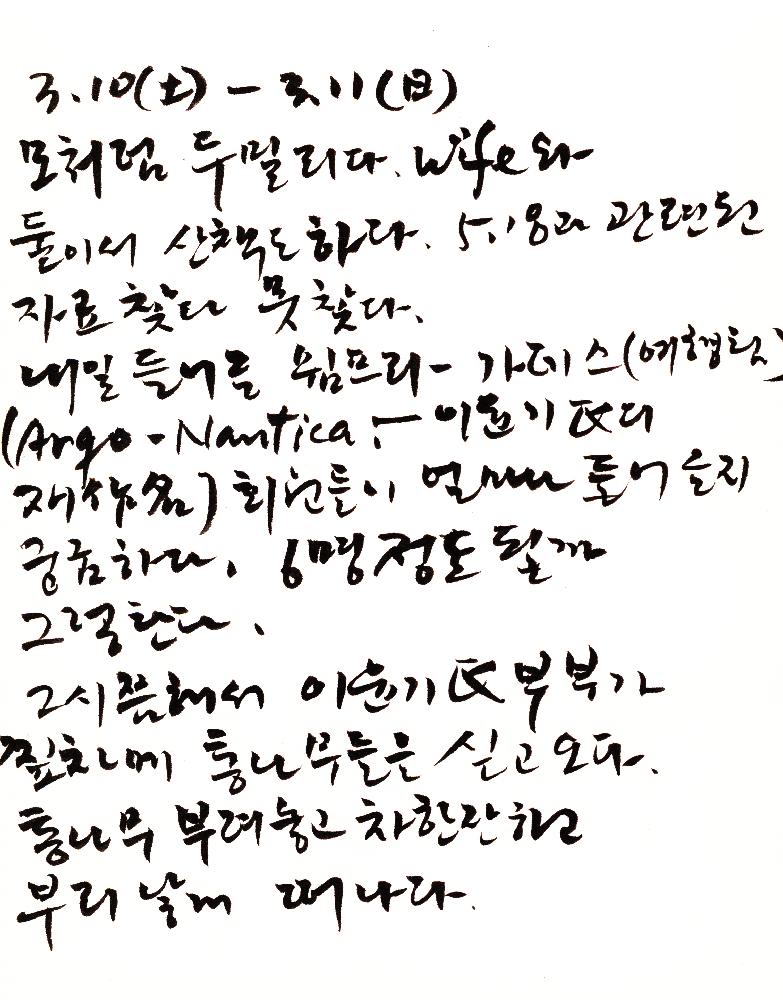 3.10(土) - 3.11(日)
모처럼 두밀리다. wife와
둘이서 산책도 하다. 5.18과 관련된
자료 찾다 못찾다.
내일 들어올 뮈토프리- 가데스(여행팀)
(Argo-Nautica :- 이윤기 氏의
재작名) 회원들이 얼마나 들어올지
궁금하다. 6명 정도 될까
그럭한다.
2시쯤해서 이윤기 氏 부부가
찦차에 통나무들을 싣고 오다.
통나무 부려놓고 차한잔하고
부리날게 떠나다.